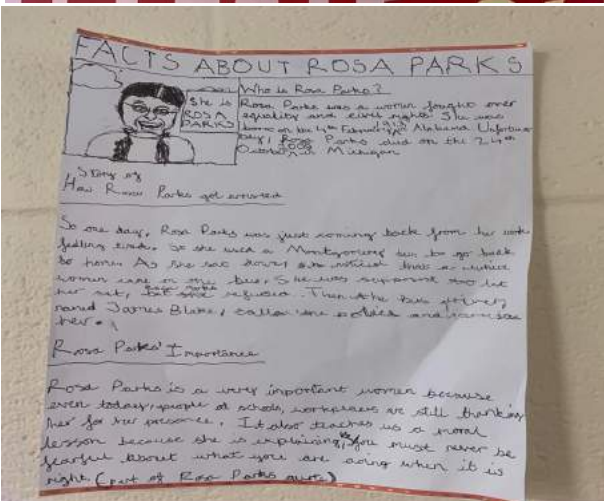 FACTS ABOUT ROSA PARKS
She is
ROSA
PARKS
Who is Rosa Parks?
Rosa Parks was a women fought over
equality and civil rights. She was
born on the 4th Feburary 1913 Alabama Unfortun
Rosa Parks died on the 24th
October in Michigan
Story of
How Rosa Parks got arrested
So one day, Rosa Parks was just coming back from her work
feeling tired. So she used a Montgomery bus to go back
to home. As she sat down, she noticed that a white
women came on the bus. She was suppose to let
her sit, but Rosa Parks refused. Then the bus
named James Blake, called the police and
her.
Rosa Parks' Importance
Rosa Parks is a very important women because
even today, people at schools, workplaces are still thanking
her for her presence. It also teaches us a moral
lesson because she is explaining, you must never be
fearful about what you are doing when it is
right (part of Rosa Parks quote)